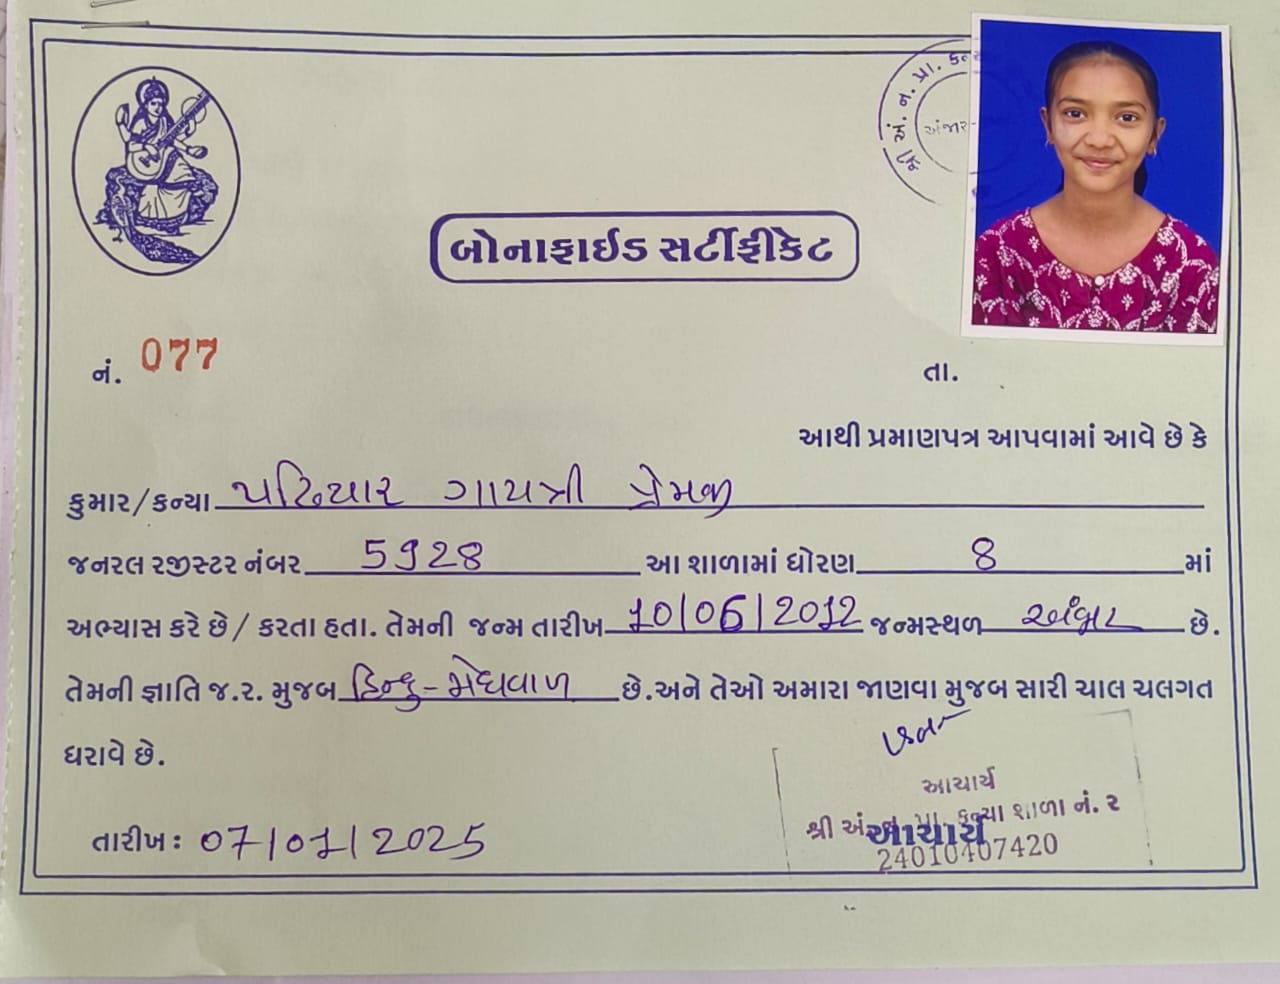 શ્રી અં. ન. પ્રા. કન્યા
અંજાર-
બોનાફાઈડ સર્ટીફીકેટ
નં. 077
તા.
આથી પ્રમાણપત્ર આપવામાં આવે છે કે
કુમાર/કન્યા પઢિયાર ગાયત્રી પ્રેમજી
જનરલ રજીસ્ટર નંબર 5928 આ શાળામાં ધોરણ 8 માં
અભ્યાસ કરે છે/ કરતા હતા. તેમની જન્મ તારીખ 10/06/2012 જન્મસ્થળ અંજાર છે.
તેમની જ્ઞાતિ જ.ર. મુજબ હિન્દુ-મેઘવાળ છે.અને તેઓ અમારા જાણવા મુજબ સારી ચાલ ચલગત
ધરાવે છે.
આચાર્ય
શ્રી અં. ન. પ્રા. કન્યા શાળા નં. ૨
તારીખ: 07/01/2025 આચાર્ય
24010407420